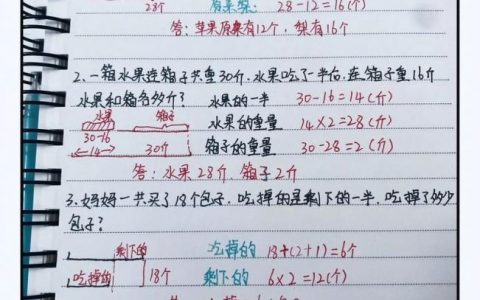 28个 原来梨: 28-12=16(个)
答: 苹果原来有12个, 梨有16个
2. 一箱水果连箱子共重30斤, 水果吃了一半后, 连箱子重16斤
水果和箱各多少斤?
水果 箱子
30-16
14 30斤
水果的一半 30-16=14(斤)
水果的重量 14×2=28(斤)
箱子的重量 30-28=2(斤)
答: 水果28斤, 箱子2斤
3. 妈妈一共买了18个包子, 吃掉的是剩下的一半, 吃掉了多少
包子?
剩下的
吃掉的 18个
吃掉的 18÷(2+1)=6个
剩下的 6×2=12(个)